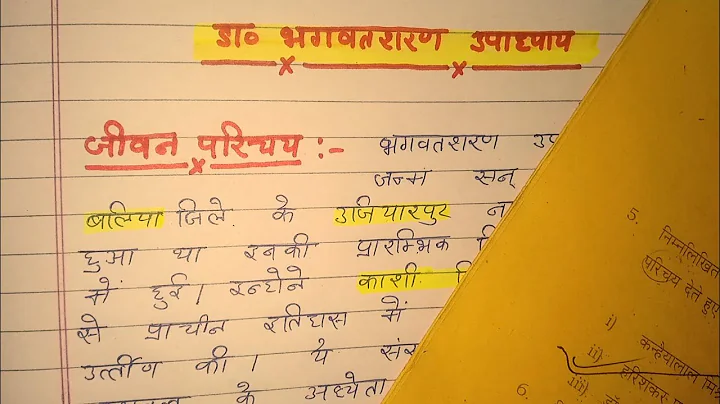 डा० भगवतशरण उपाध्याय
जीवन परिचय :- भगवतशरण उप
जन्म सन्
बलिया जिले के उजियारपुर ना
हुआ था इनकी प्रारम्भिक
में हुई। इन्होंने काशी वि
से प्राचीन इतिहास में
उर्त्तीण की। ये संस्
के अध्येता
5. निम्नलिखित
परिचय देते हुए
i) कन्हैयालाल मिश्र
ii) हरिशंकर
iii)
6.